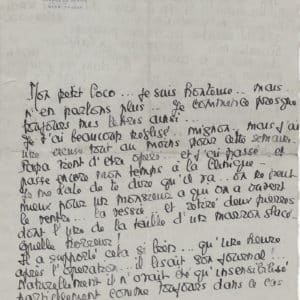 Mon petit Coco... Je suis honteuse... mais
n'en parlons plus... Je commence presque
toujours mes lettres ainsi...
Je t'ai beaucoup négligé, mignon, mais j'ai
une excuse tout au moins pour cette semaine
Papa vient d'être opéré et j'ai passé et
passe encore mon temps à la clinique
J'ai hâte de te dire qu'il va on ne peut
mieux pour un monsieur a qui on a ouvert
le ventre... la vessie et retiré deux pierres
dont l'une de la taille d'un marron glacé
Quelle horreur!
Il a supporté cela si bien... qu'une heure
après l'opération... il lisait son journal!
Naturellement il n'avait été qu'insensibilisé
partiellement comme toujours dans ce cas